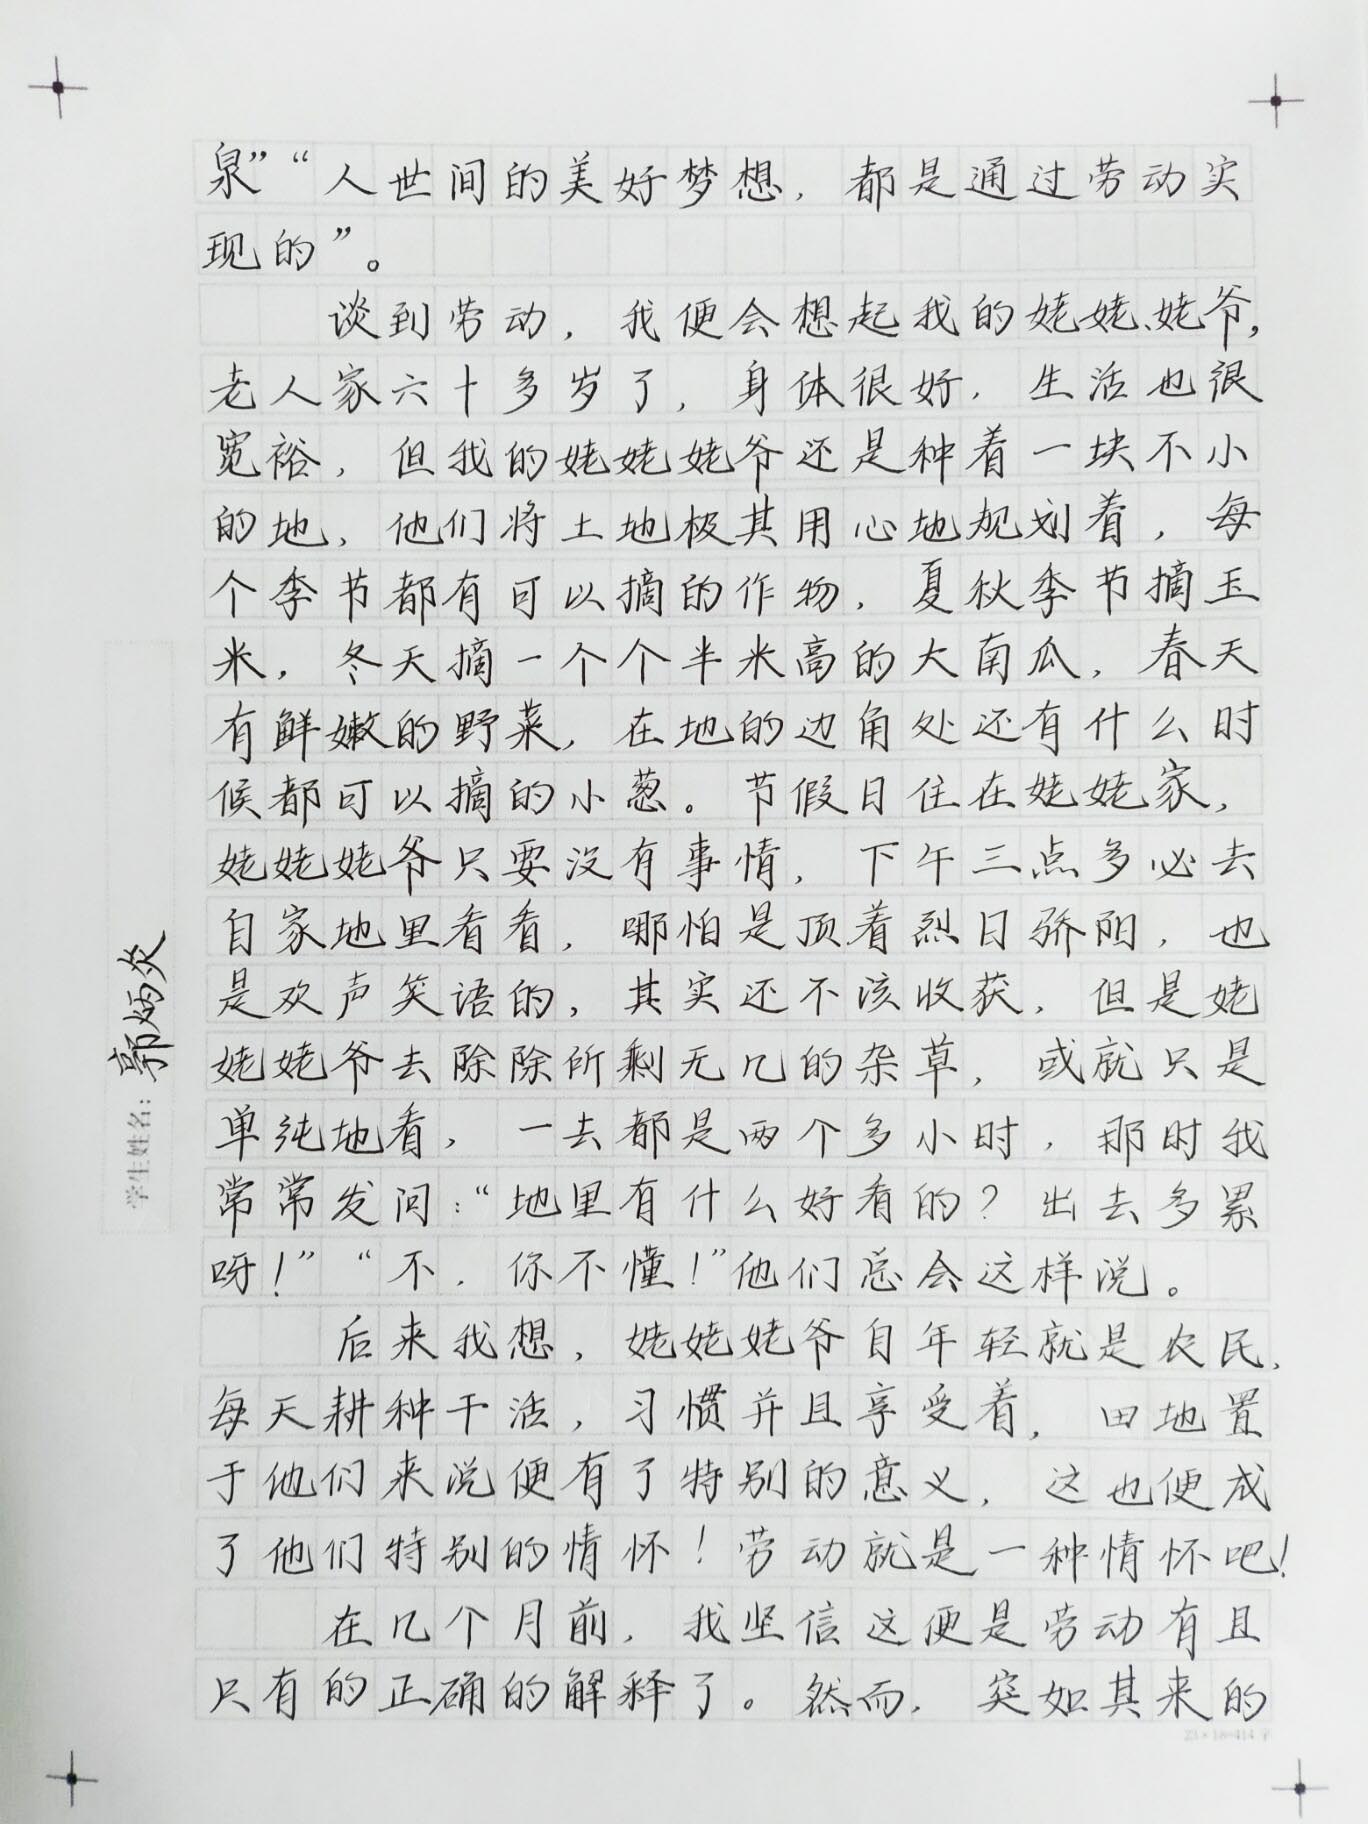 泉”“人世间的美好梦想，都是通过劳动实
现的”。
谈到劳动，我便会想起我的姥姥、姥爷，
老人家六十多岁了，身体很好，生活也很
宽裕，但我的姥姥姥爷还是种着一块不小
的地，他们将土地极其用心地规划着，每
个季节都有可以摘的作物，夏秋季节摘玉
米，冬天摘一个个半米高的大南瓜，春天
有鲜嫩的野菜，在地的边角处还有什么时
候都可以摘的小葱。节假日住在姥姥家，
姥姥姥爷只要没有事情，下午三点多必去
自家地里看看，哪怕是顶着烈日骄阳，也
是欢声笑语的，其实还不该收获，但是姥
姥姥爷去除除所剩无几的杂草，或就只是
单纯地看，一去都是两个多小时，那时我
常常发问：“地里有什么好看的？出去多累
呀！”“不，你不懂！”他们总会这样说。
后来我想，姥姥姥爷自年轻就是农民，
每天耕种干活，习惯并且享受着，田地置
于他们来说便有了特别的意义，这也便成
了他们特别的情怀！劳动就是一种情怀吧！
在几个月前，我坚信这便是劳动有且
只有的正确的解释了。然而，突如其来的
学生姓名：郭炳炎
23×18=414字